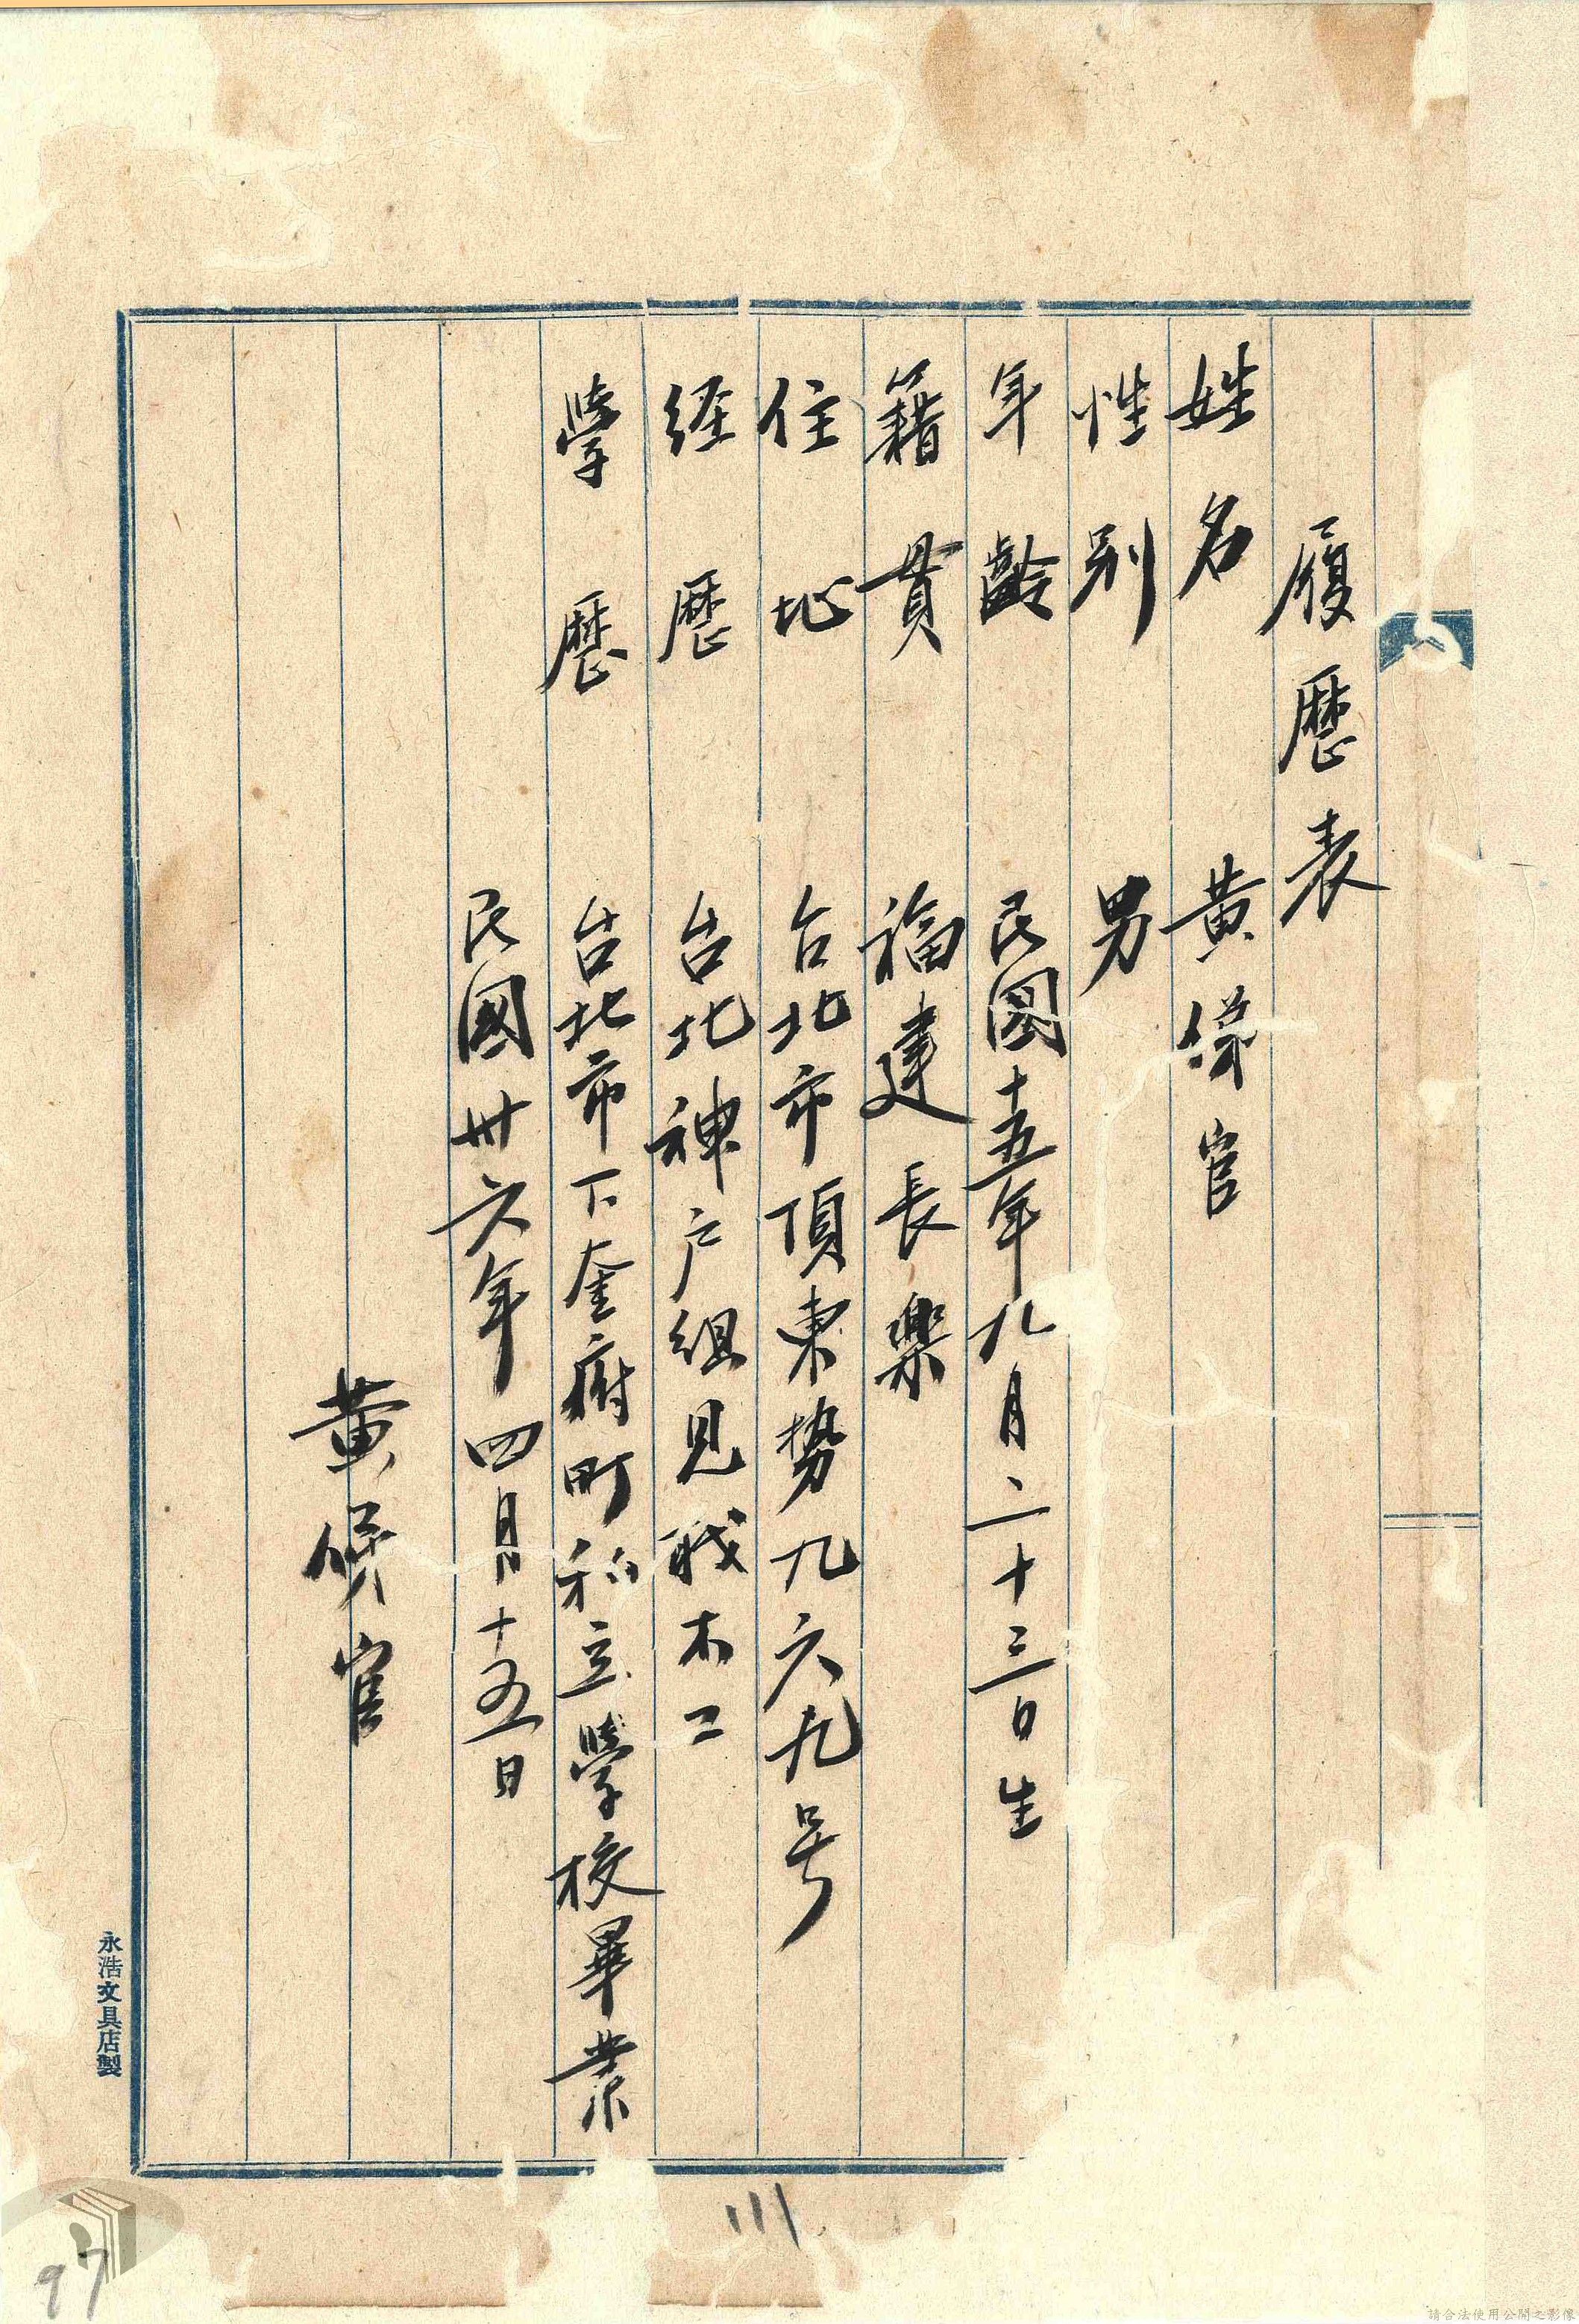 履歷表
姓名 黃 官
性別 男
年齡 民國十五年九月二十三日生
籍貫 福建長樂
住址 台北市頂東势九六九号
経歷 台北神户組見战木工
學歷 台北市下奎府町私立學校畢業
民國卅六年四月十五日
黃 官
永浩文具店製
111
97
請合法使用公開之影像